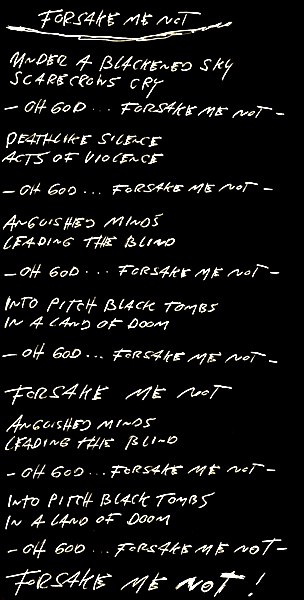 FORSAKE ME NOT
UNDER A BLACKENED SKY
SCARECROWS CRY
- OH GOD... FORSAKE ME NOT -
DEATHLIKE SILENCE
ACTS OF VIOLENCE
- OH GOD... FORSAKE ME NOT -
ANGUISHED MINDS
LEADING THE BLIND
- OH GOD... FORSAKE ME NOT -
INTO PITCH BLACK TOMBS
IN A LAND OF DOOM
- OH GOD... FORSAKE ME NOT -
FORSAKE ME NOT
ANGUISHED MINDS
LEADING THE BLIND
- OH GOD... FORSAKE ME NOT -
INTO PITCH BLACK TOMBS
IN A LAND OF DOOM
- OH GOD... FORSAKE ME NOT -
FORSAKE ME NOT!